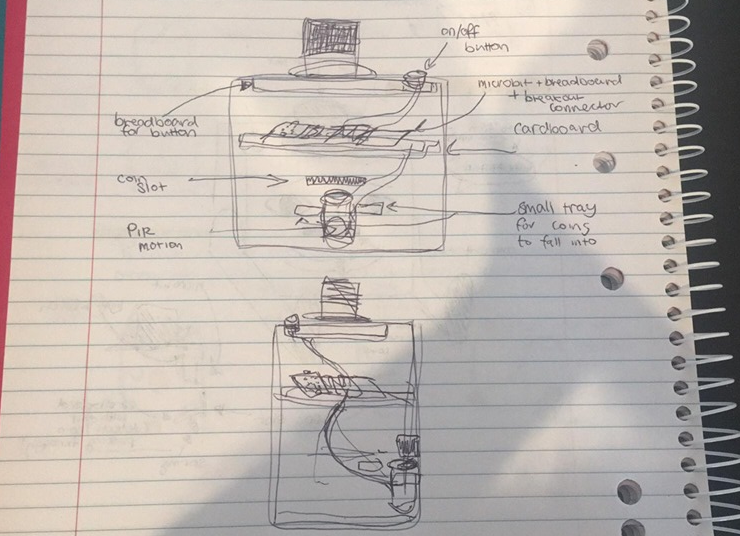 on/off
button
microbit + breadboard
+ breakout
connector
breadboard
for button
cardboard
coin
slot
small tray
for coins
to fall into
PIR
motion